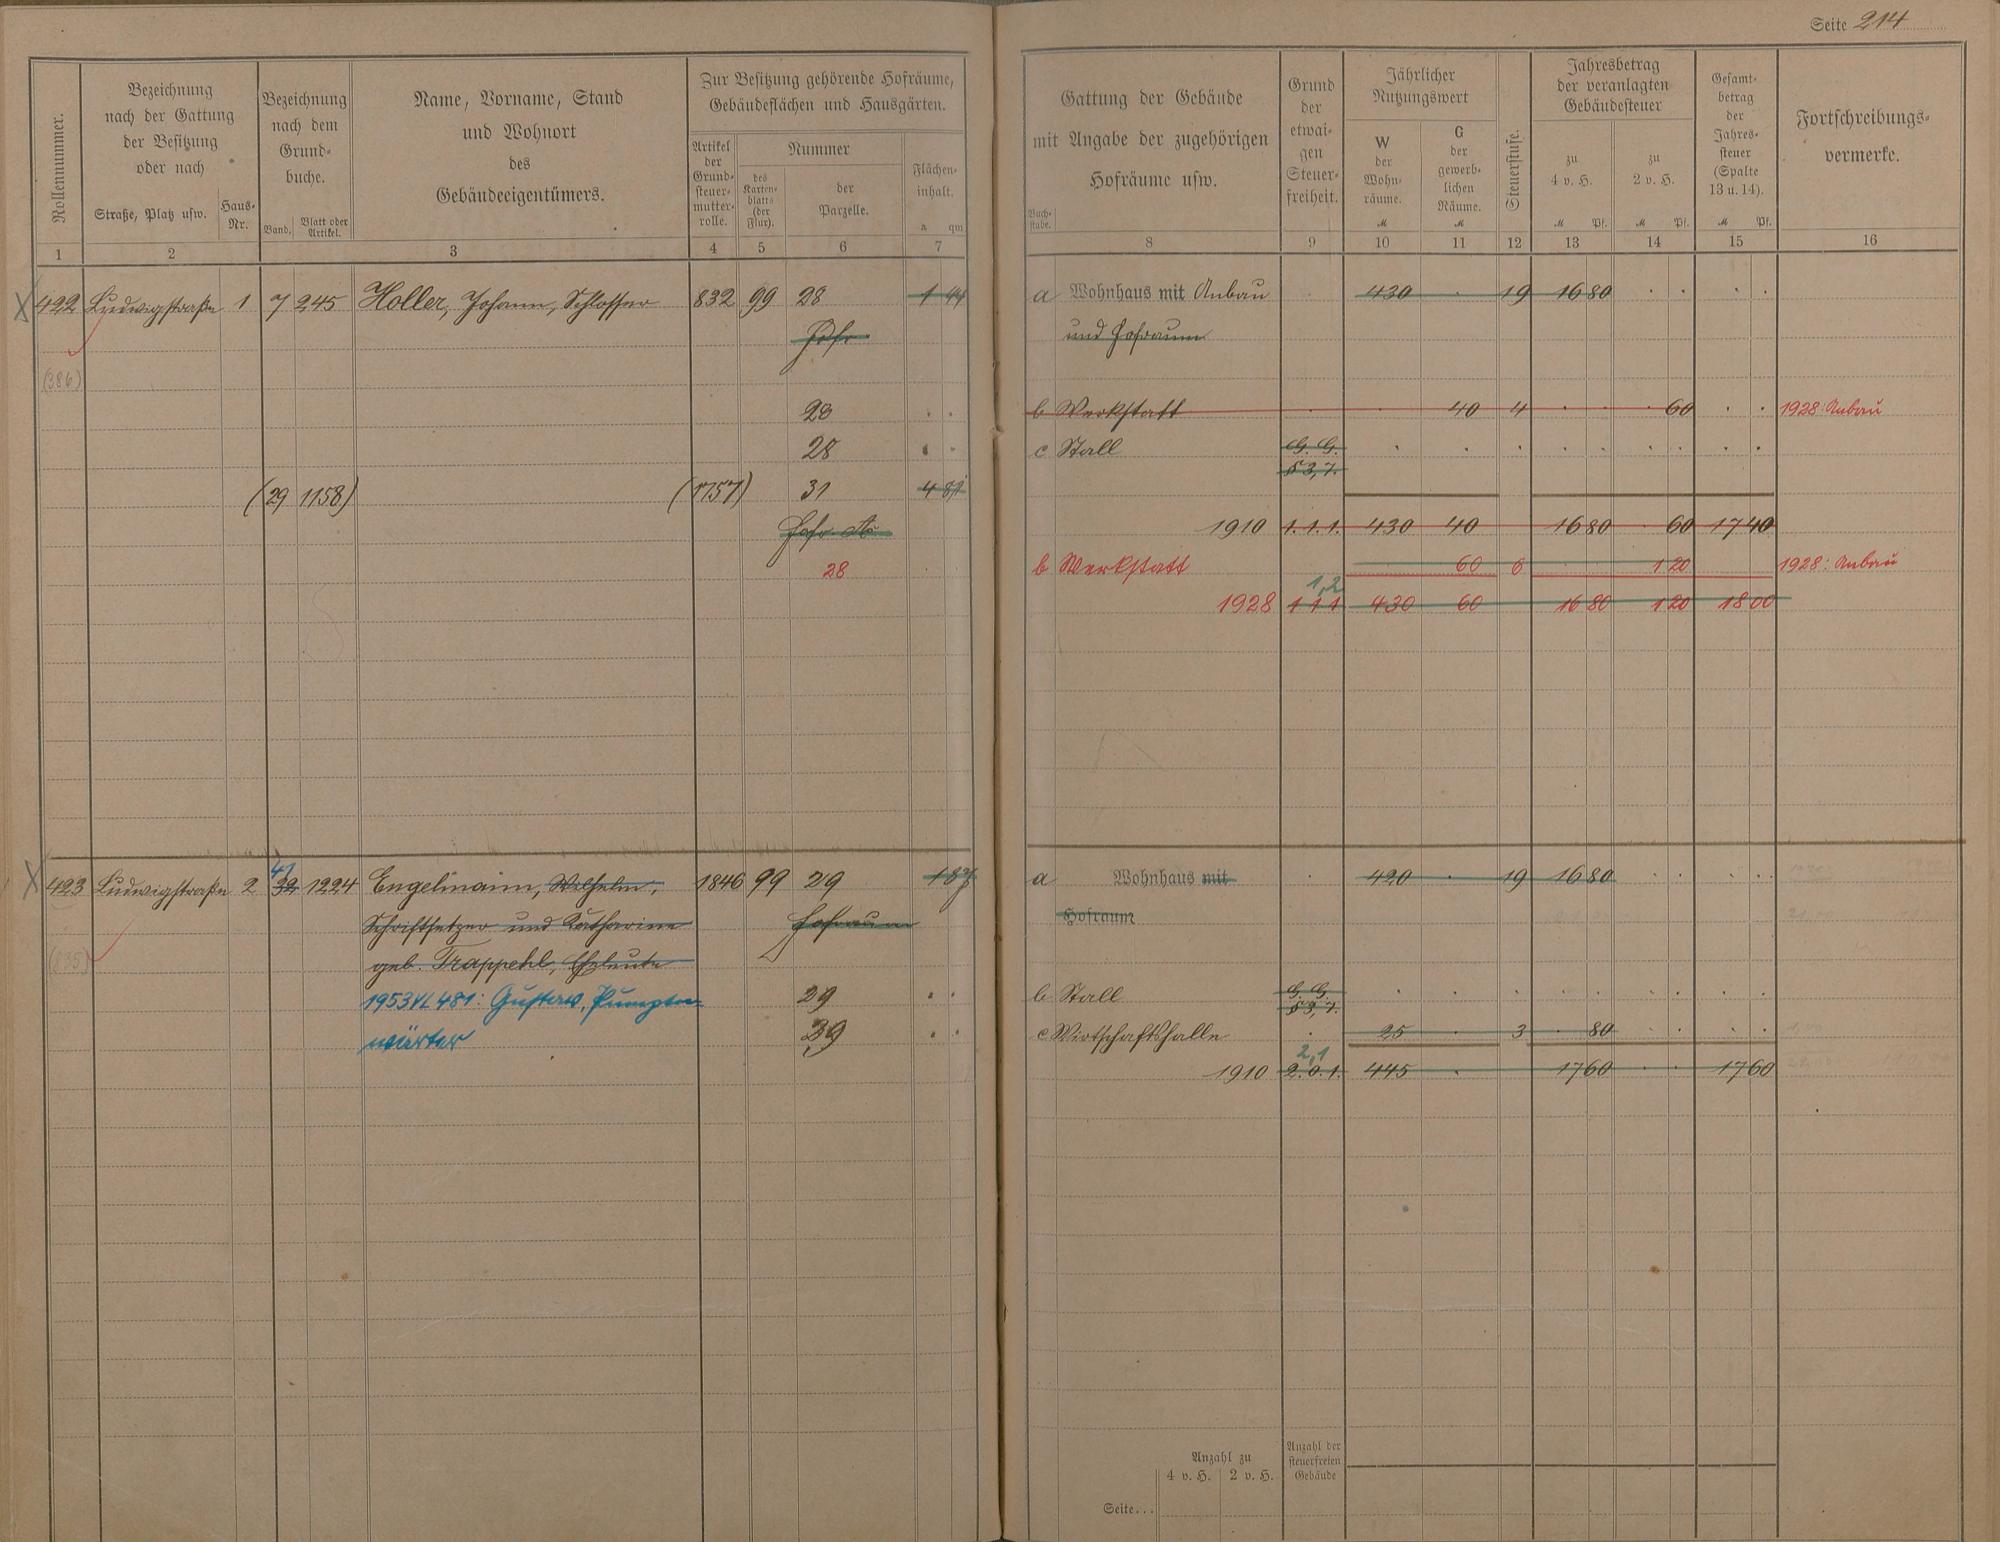 Seite 214
Rollennummer.
Bezeichnung
nach der Gattung
der Besitzung
oder nach
Straße, Platz usw.
Haus-
Nr.
Bezeichnung
nach dem
Grund-
buche.
Band.
Blatt oder
Artikel.
Name, Vorname, Stand
und Wohnort
des
Gebäudeeigentümers.
Zur Besitzung gehörende Hofräume,
Gebäudeflächen und Hausgärten.
Artikel
der
Grund-
steuer-
mutter-
rolle.
Nummer
des
Karten-
blatts
(der
Flur).
der
Parzelle.
Flächen-
inhalt.
a qm
Gattung der Gebäude
mit Angabe der zugehörigen
Hofräume usw.
Buch-
stabe.
Grund
der
etwai-
gen
Steuer-
freiheit.
Jährlicher
Nutzungswert
W
der
Wohn-
räume.
M
G
der
gewerb-
lichen
Räume.
M
Steuerstufe.
Jahresbetrag
der veranlagten
Gebäudesteuer
zu
4 v. H.
M Pf.
zu
2 v. H.
M Pf.
Gesamt-
betrag
der
Jahres-
steuer
(Spalte
13 u. 14).
M Pf.
Fortschreibungs-
vermerke.
1 2 3 4 5 6 7 8 9 10 11 12 13 14 15 16
422 Ludwigstraße 1 7 245 Holler, Johann, Schlosser 832 99 28 1 44 a Wohnhaus mit Anbau 430 19 16 80
Hofr. und Hofraum
(386)
28 b Werkstatt 40 4 60 1928: Anbau
28 c Stall G. G.
§ 3, 7.
(29 1158) (1757) 31 4 81
1910 1.1.1. 430 40 16 80 60 17 40
28 b Werkstatt 60 6 1 20 1928: Anbau
1,2
1928 1 1 1 430 60 16 80 1 20 18 00
41
423 Ludwigstraße 2 32 1224 Engelmann, Wilhelm, 1846 99 29 1 87 a Wohnhaus mit 420 19 16 80
Schriftsetzer und Katharine Hofraum Hofraum
geb. Trappehl, Eheleute
1953 VL 481: Gustav, Pumpen- 29 b Stall G. G.
§ 3, 7.
wärter 29 c Wirtschaftshalle 25 3 80
2,1
1910 2.0.1. 445 17 60 17 60
Anzahl zu
4 v. H. 2 v. H.
Anzahl der
steuerfreien
Gebäude
Seite...